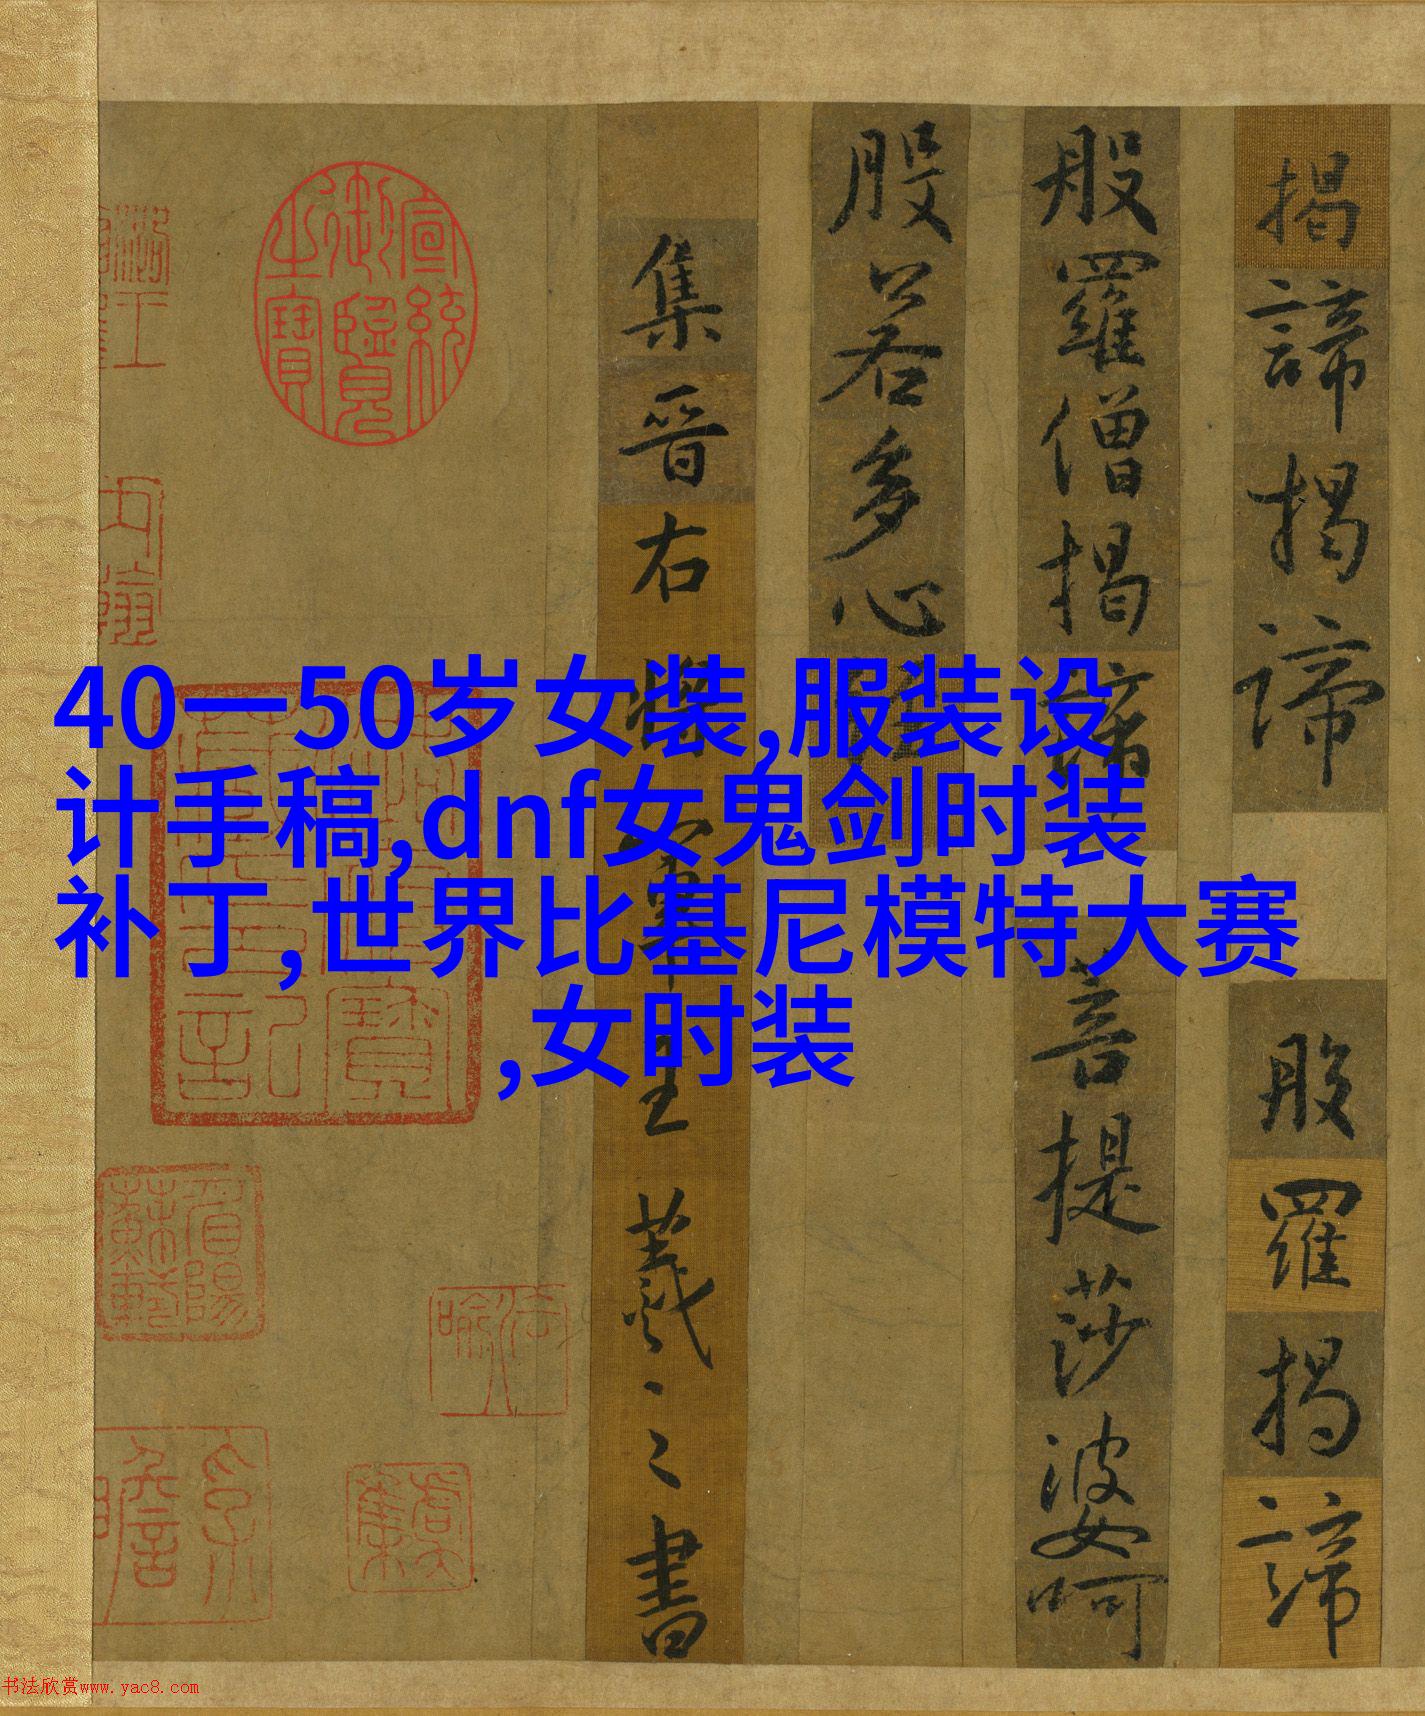 40一50岁女装,服装设
计手稿,dnf女鬼剑时装
补丁,世界比基尼模特大赛
,女时装
揭諦揭諦 般羅揭諦
般羅僧揭諦 菩提莎婆呵
般若多心經
集晉右將軍王羲之書
宣統御覽之寶
书法欣赏www.yac8.com